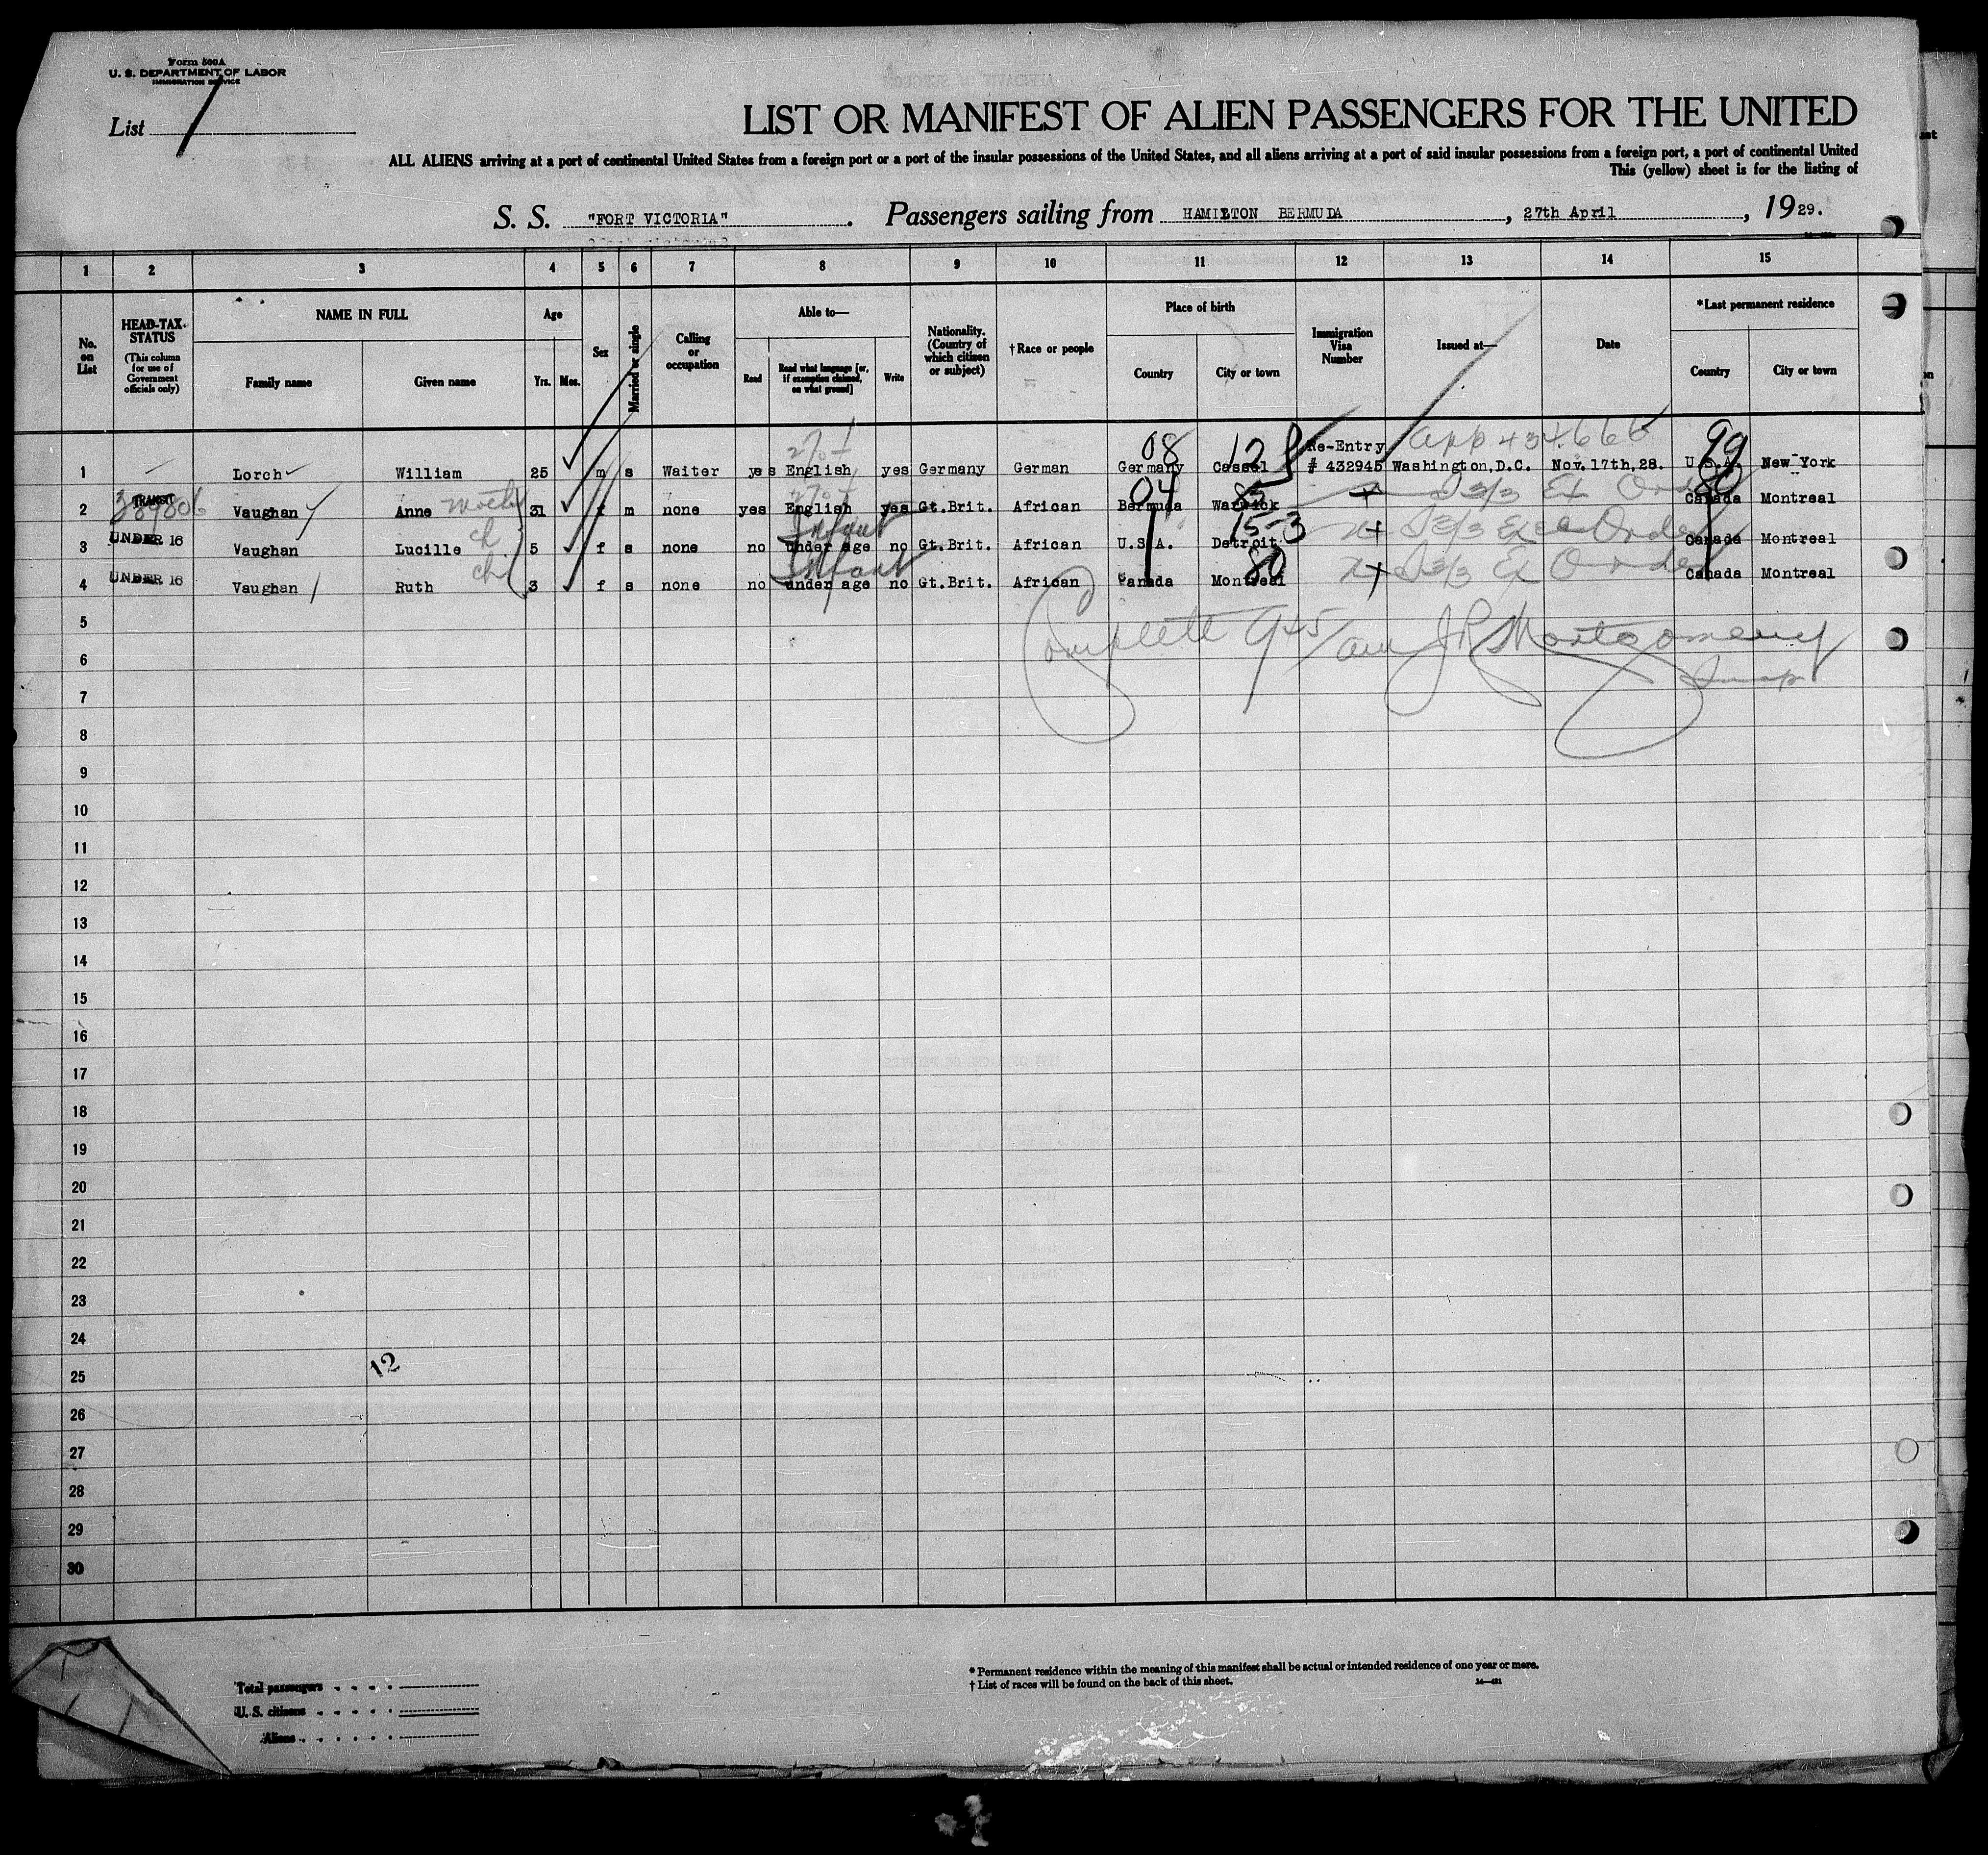 Form 500A
U. S. DEPARTMENT OF LABOR
IMMIGRATION SERVICE
List 1
LIST OR MANIFEST OF ALIEN PASSENGERS FOR THE UNITED
ALL ALIENS arriving at a port of continental United States from a foreign port or a port of the insular possessions of the United States, and all aliens arriving at a port of said insular possessions from a foreign port, a port of continental United
This (yellow) sheet is for the listing of
S. S. "FORT VICTORIA". Passengers sailing from HAMILTON BERMUDA, 27th April, 1929.
1 2 3 4 5 6 7 8 9 10 11 12 13 14 15
No. on List
HEAD-TAX STATUS (This column for use of Government officials only)
NAME IN FULL
Family name Given name
Age
Yrs. Mos.
Sex
Married or single
Calling or occupation
Able to—
Read Read what language [or, if exemption claimed, on what ground] Write
Nationality. (Country of which citizen or subject)
†Race or people
Place of birth
Country City or town
Immigration Visa Number
Issued at—
Date
*Last permanent residence
Country City or town
08 12 Re-Entry app 434666 99
1 Lorch William 25 m s Waiter yes English yes Germany German Germany Cassel # 432945 Washington, D.C. Nov. 17th, 28. U.S.A. New York
TRANSIT 04 85 3/3 Ex Order 80
2 Vaughan Anne 31 f m none yes English yes Gt.Brit. African Bermuda Warwick Canada Montreal
UNDER 16 ch Infant 15-3 3/3 Ex Order
3 Vaughan Lucille 5 f s none no under age no Gt.Brit. African U.S.A. Detroit Canada Montreal
UNDER 16 ch Infant 80 3/3 Ex Order
4 Vaughan Ruth 3 f s none no under age no Gt.Brit. African Canada Montreal Canada Montreal
5
Complete 945 am J R Montgomery
6
Insp
7
8
9
10
11
12
13
14
15
16
17
18
19
20
21
22
23
24
12
25
26
27
28
29
30
* Permanent residence within the meaning of this manifest shall be actual or intended residence of one year or more.
† List of races will be found on the back of this sheet.
14—421
Total passengers
U. S. citizens
Aliens